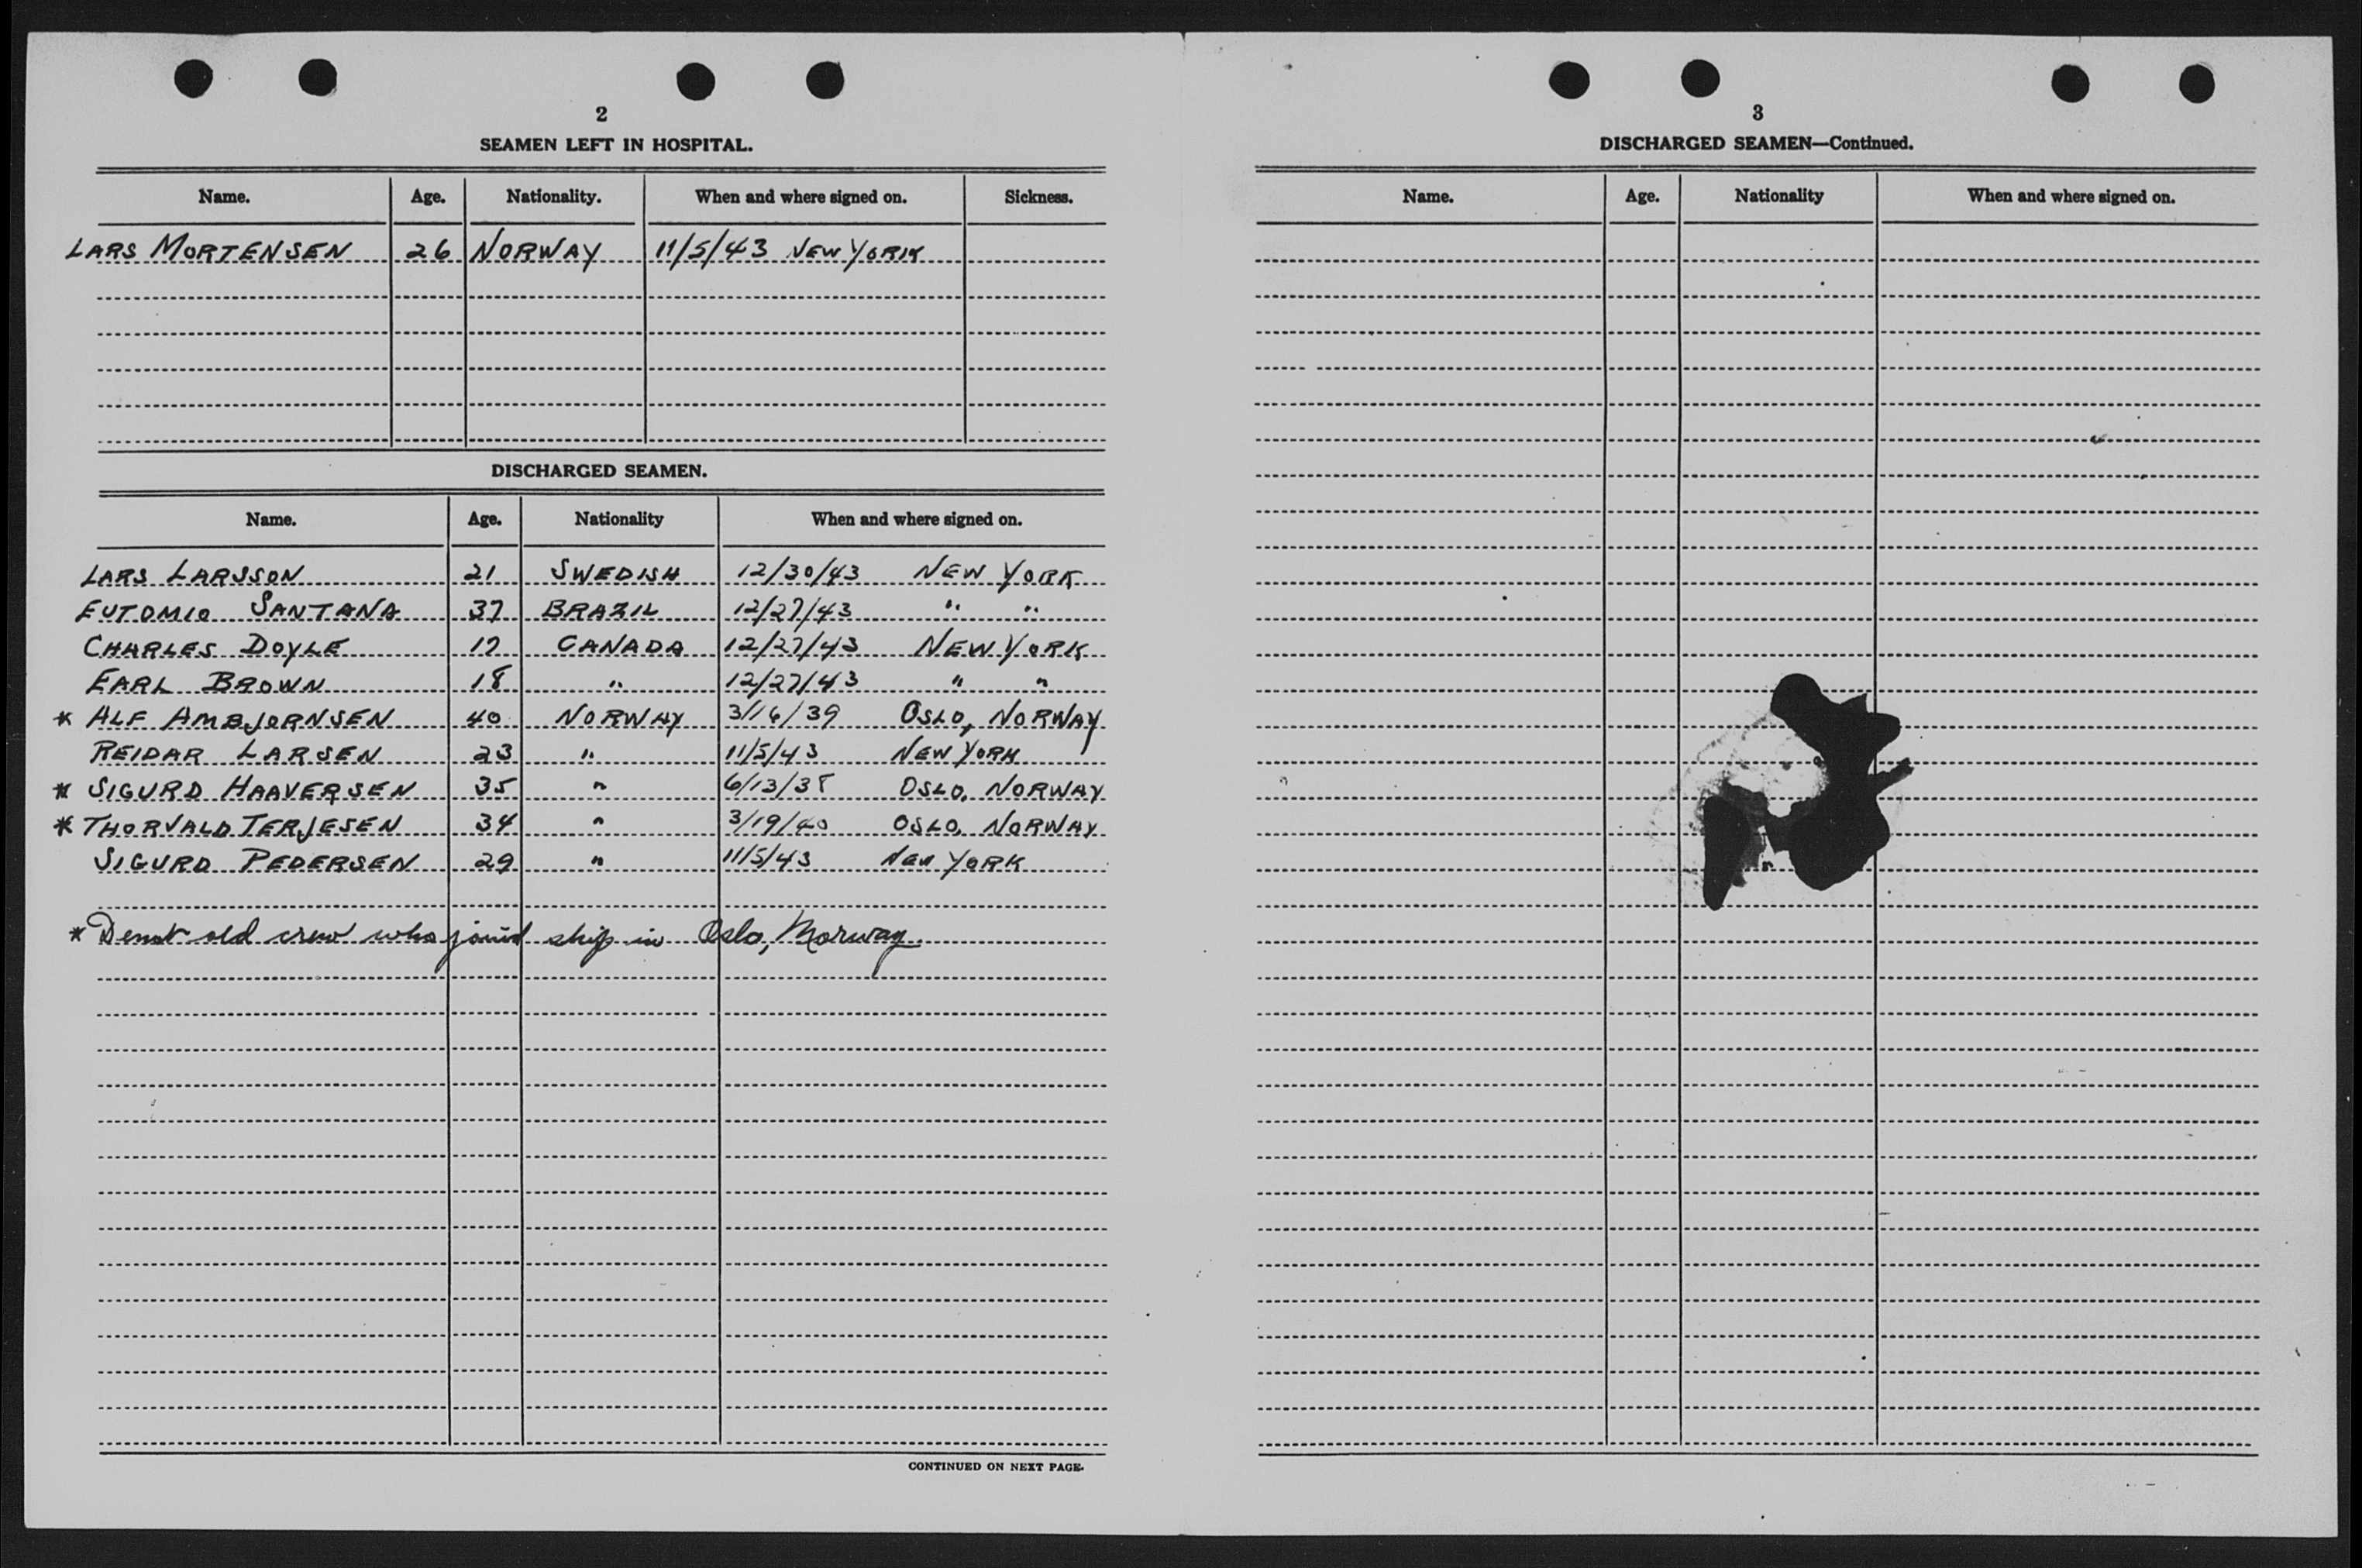 2
SEAMEN LEFT IN HOSPITAL.
Name. Age. Nationality. When and where signed on. Sickness.
LARS MORTENSEN 26 NORWAY 11/5/43 NEW YORK
DISCHARGED SEAMEN.
Name. Age. Nationality When and where signed on.
LARS LARSSON 21 SWEDISH 12/30/43 NEW YORK
EUTOMIO SANTANA 37 BRAZIL 12/27/43 " "
CHARLES DOYLE 17 CANADA 12/27/43 NEW YORK
EARL BROWN 18 " 12/27/43 " "
* ALF AMBJORNSEN 40 NORWAY 3/16/39 OSLO, NORWAY
REIDAR LARSEN 23 " 11/5/43 NEW YORK
* SIGURD HAAVERSEN 35 " 6/13/38 OSLO, NORWAY
* THORVALD TERJESEN 34 " 3/19/40 OSLO, NORWAY
SIGURD PEDERSEN 29 " 11/5/43 NEW YORK
* Denot old crew who joined ship in Oslo, Norway.
CONTINUED ON NEXT PAGE.
3
DISCHARGED SEAMEN—Continued.
Name. Age. Nationality When and where signed on.